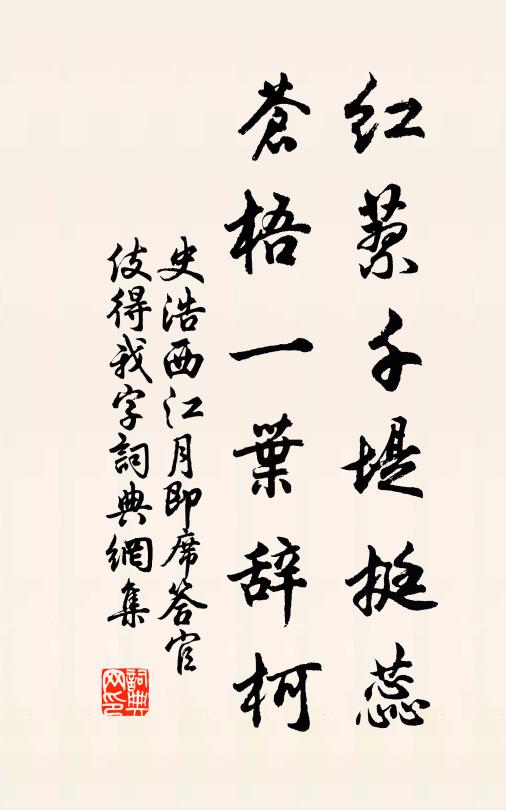 紅蓼千堤挺蕊
蒼梧一葉辞柯
史浩西江月即席答官
伎得我字詞典網集
詞典网印